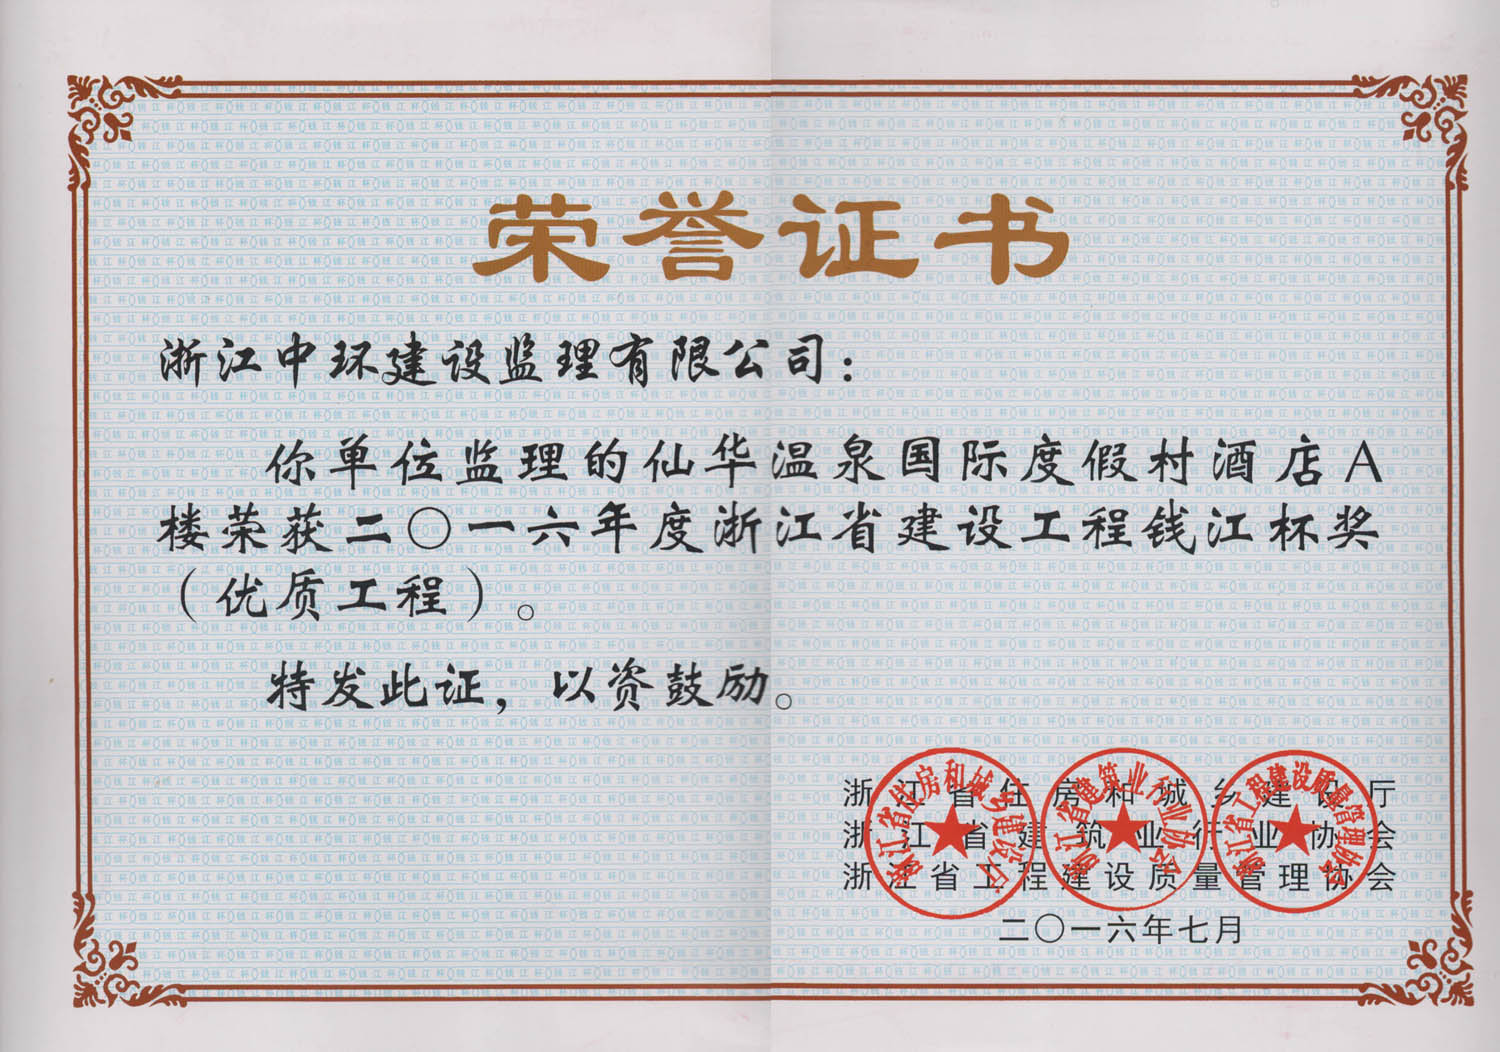 荣誉证书
浙江中环建设监理有限公司：
你单位监理的仙华温泉国际度假村酒店A
楼荣获二〇一六年度浙江省建设工程钱江杯奖
（优质工程）。
特发此证，以资鼓励。
浙江省住房和城乡建设厅
浙江省建筑业行业协会
浙江省工程建设质量管理协会
二〇一六年七月
浙江省住房和城乡建设厅
浙江省建筑业行业协会
浙江省工程建设质量管理协会